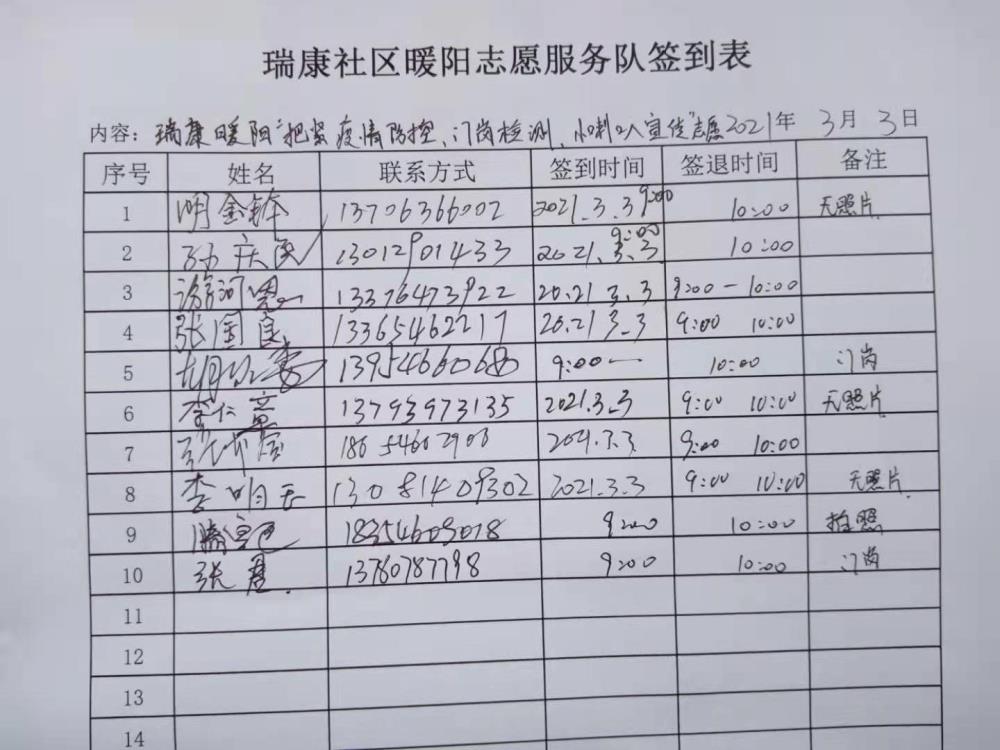 瑞康社区暖阳志愿服务队签到表
内容：瑞康暖阳"把紧疫情防控、门岗检测、小喇叭入宣传"志愿 2021年 3月 3日
序号 姓名 联系方式 签到时间 签退时间 备注
1 明金钟 13706366002 2021.3.3 9:00 10:00 无照片
2 孙庆民 13012901433 2021.3.3 9:00 10:00
3 13376473922 20.21 3.3 9:00-10:00
4 张国良 13365462217 20.21 3.3 9:00 10:00
5 13954660068 9:00— 10:00 门岗
6 李仁章 13793973135 2021.3.3 9:00 10:00 无照片
7 18654602908 2021.3.3 9:00 10:00
8 李明玉 13081409302 2021.3.3 9:00 10:00 无照片
9 18354603018 9:00 10:00 拍照
10 张 13780787798 9:00 10:00 门岗
11
12
13
14